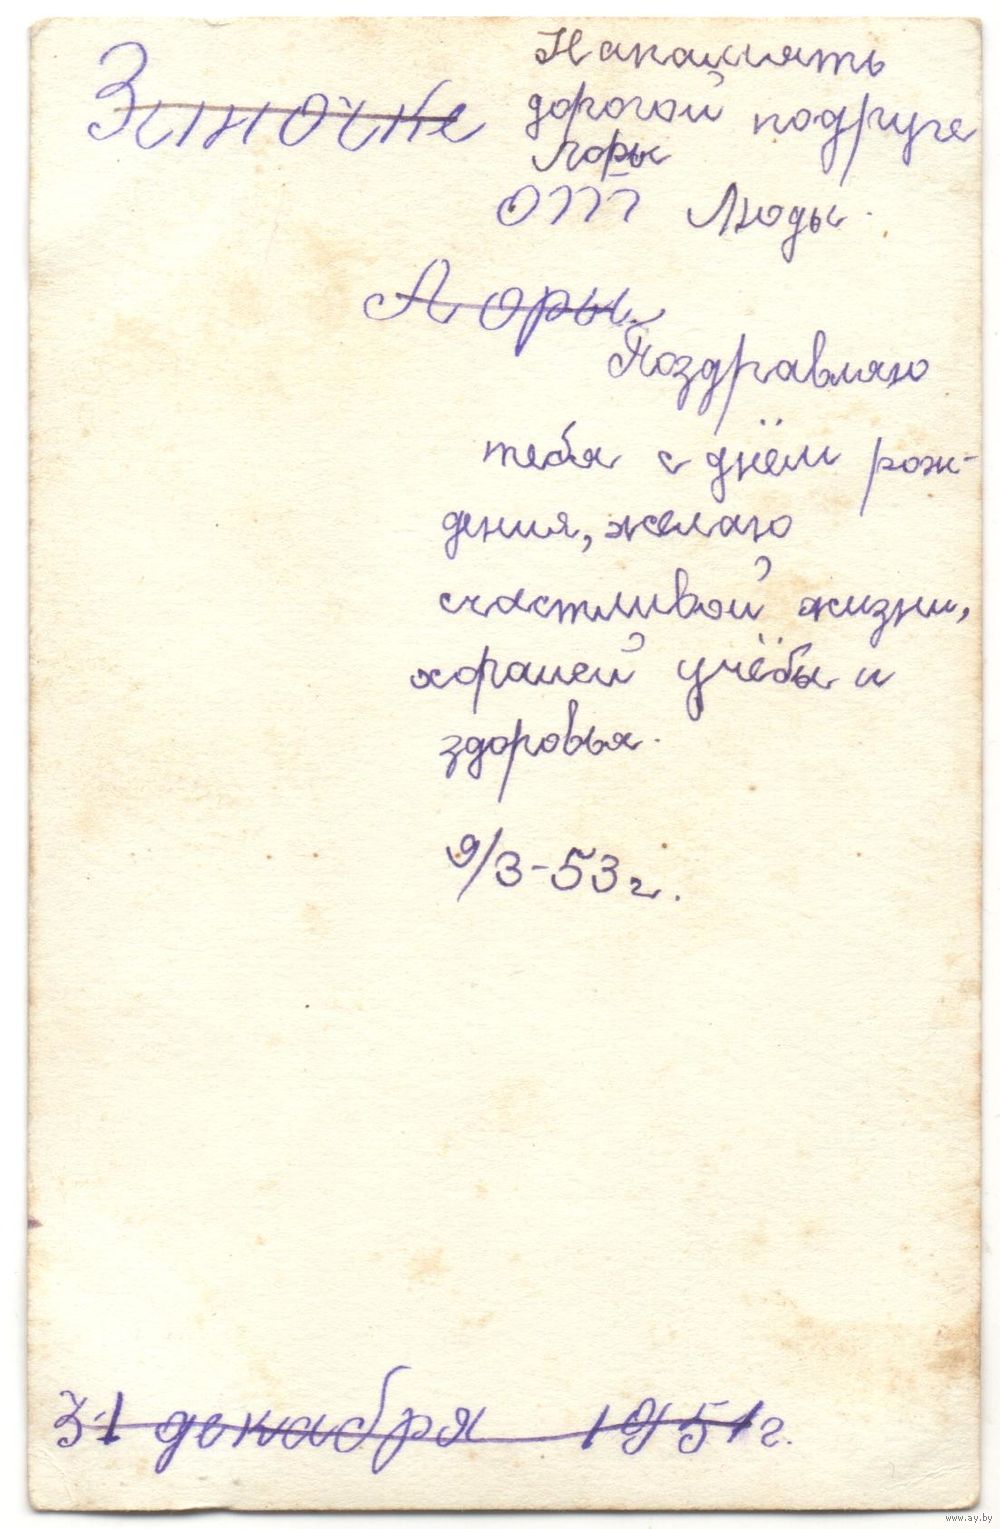 Зиночке
Напамять
дорогой подруге
Лоры
от Люды.
Лоры.
Поздравляю
тебя с днём рож-
дения, желаю
счастливой жизни,
хорашей учёбы и
здоровья.
9/3-53г.
31 декабря 1951г.
www.ay.by